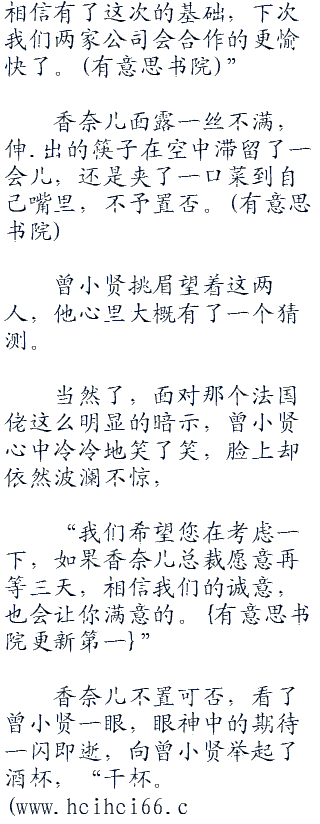 相信有了这次的基础，下次
我们两家公司会合作的更愉
快了。(有意思书院)”
香奈儿面露一丝不满，
伸.出的筷子在空中滞留了一
会儿，还是夹了一口菜到自
己嘴里，不予置否。(有意思
书院)
曾小贤挑眉望着这两
人，他心里大概有了一个猜
测。
当然了，面对那个法国
佬这么明显的暗示，曾小贤
心中冷冷地笑了笑，脸上却
依然波澜不惊，
“我们希望您在考虑一
下，如果香奈儿总裁愿意再
等三天，相信我们的诚意，
也会让你满意的。{有意思书
院更新第一}”
香奈儿不置可否，看了
曾小贤一眼，眼神中的期待
一闪即逝，向曾小贤举起了
酒杯，“干杯。
(www.hcihci66.c